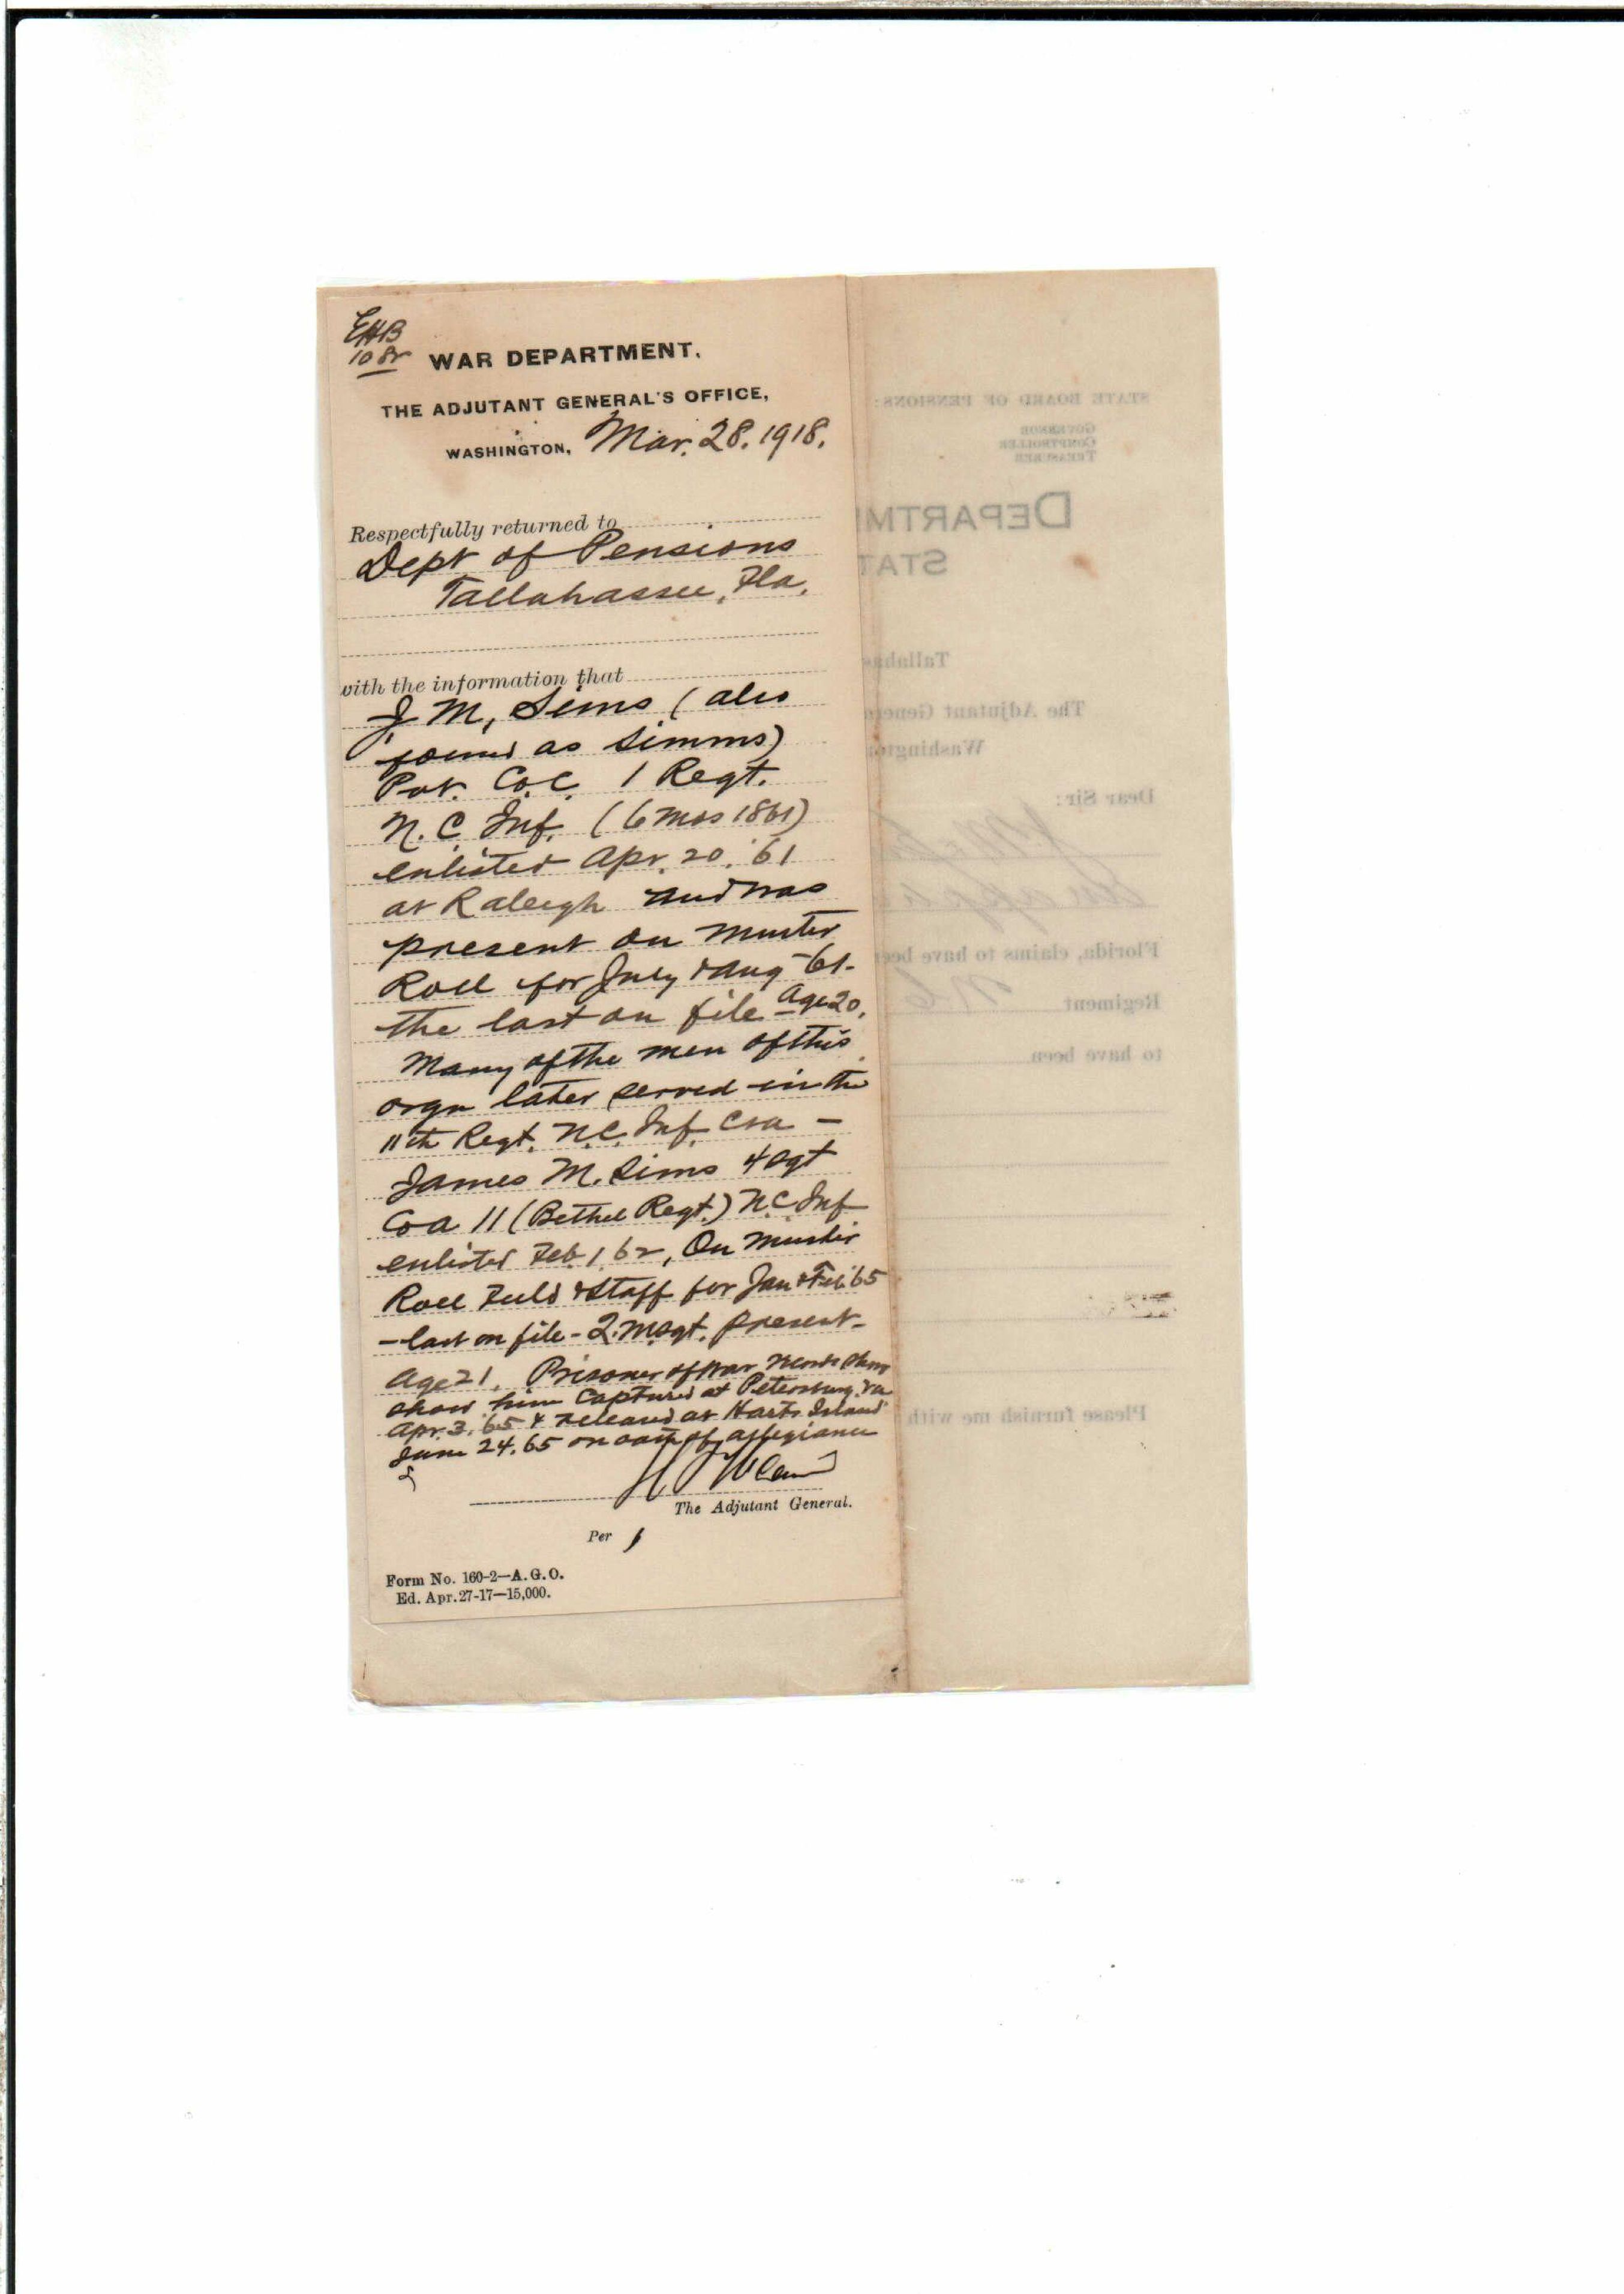 EHB
WAR DEPARTMENT.
THE ADJUTANT GENERAL'S OFFICE,
WASHINGTON, Mar. 28. 1918.
Respectfully returned to
Dept of Pensions
Tallahassee, Fla.
with the information that
J. M. Sims (also
found as Simms)
Pvt. Co. C. 1 Regt.
N. C. Inf. (6 mos 1861)
enlisted Apr. 20. '61
at Raleigh and was
present on Muster
Roll for July & Aug '61-
the last on file - Age 20.
Many of the men of this
orgn later served in the
11th Regt. N.C. Inf. CSA -
James M. Sims 4 Sgt
Co A 11 (Bethel Regt.) N.C. Inf
enlisted Feb. 1, 62, On Muster
Roll Field & Staff for Jan & Feb '65
- last on file - Q. M. Sgt. present -
Age 21. Prisoner of War records show
show him captured at Petersburg, Va
Apr. 3. '65 & released at Harts Island
June 24. 65 on oath of allegiance
The Adjutant General.
Per
Form No. 160-2—A.G.O.
Ed. Apr. 27-17—15,000.
STATE BOARD OF PENSIONS:
GOVERNOR
COMPTROLLER
TREASURER
DEPARTM
STAT
Tallahas
The Adjutant Genera
Washington
Dear Sir:
Florida, claims to have bee
Regiment N C
to have been
Please furnish me with